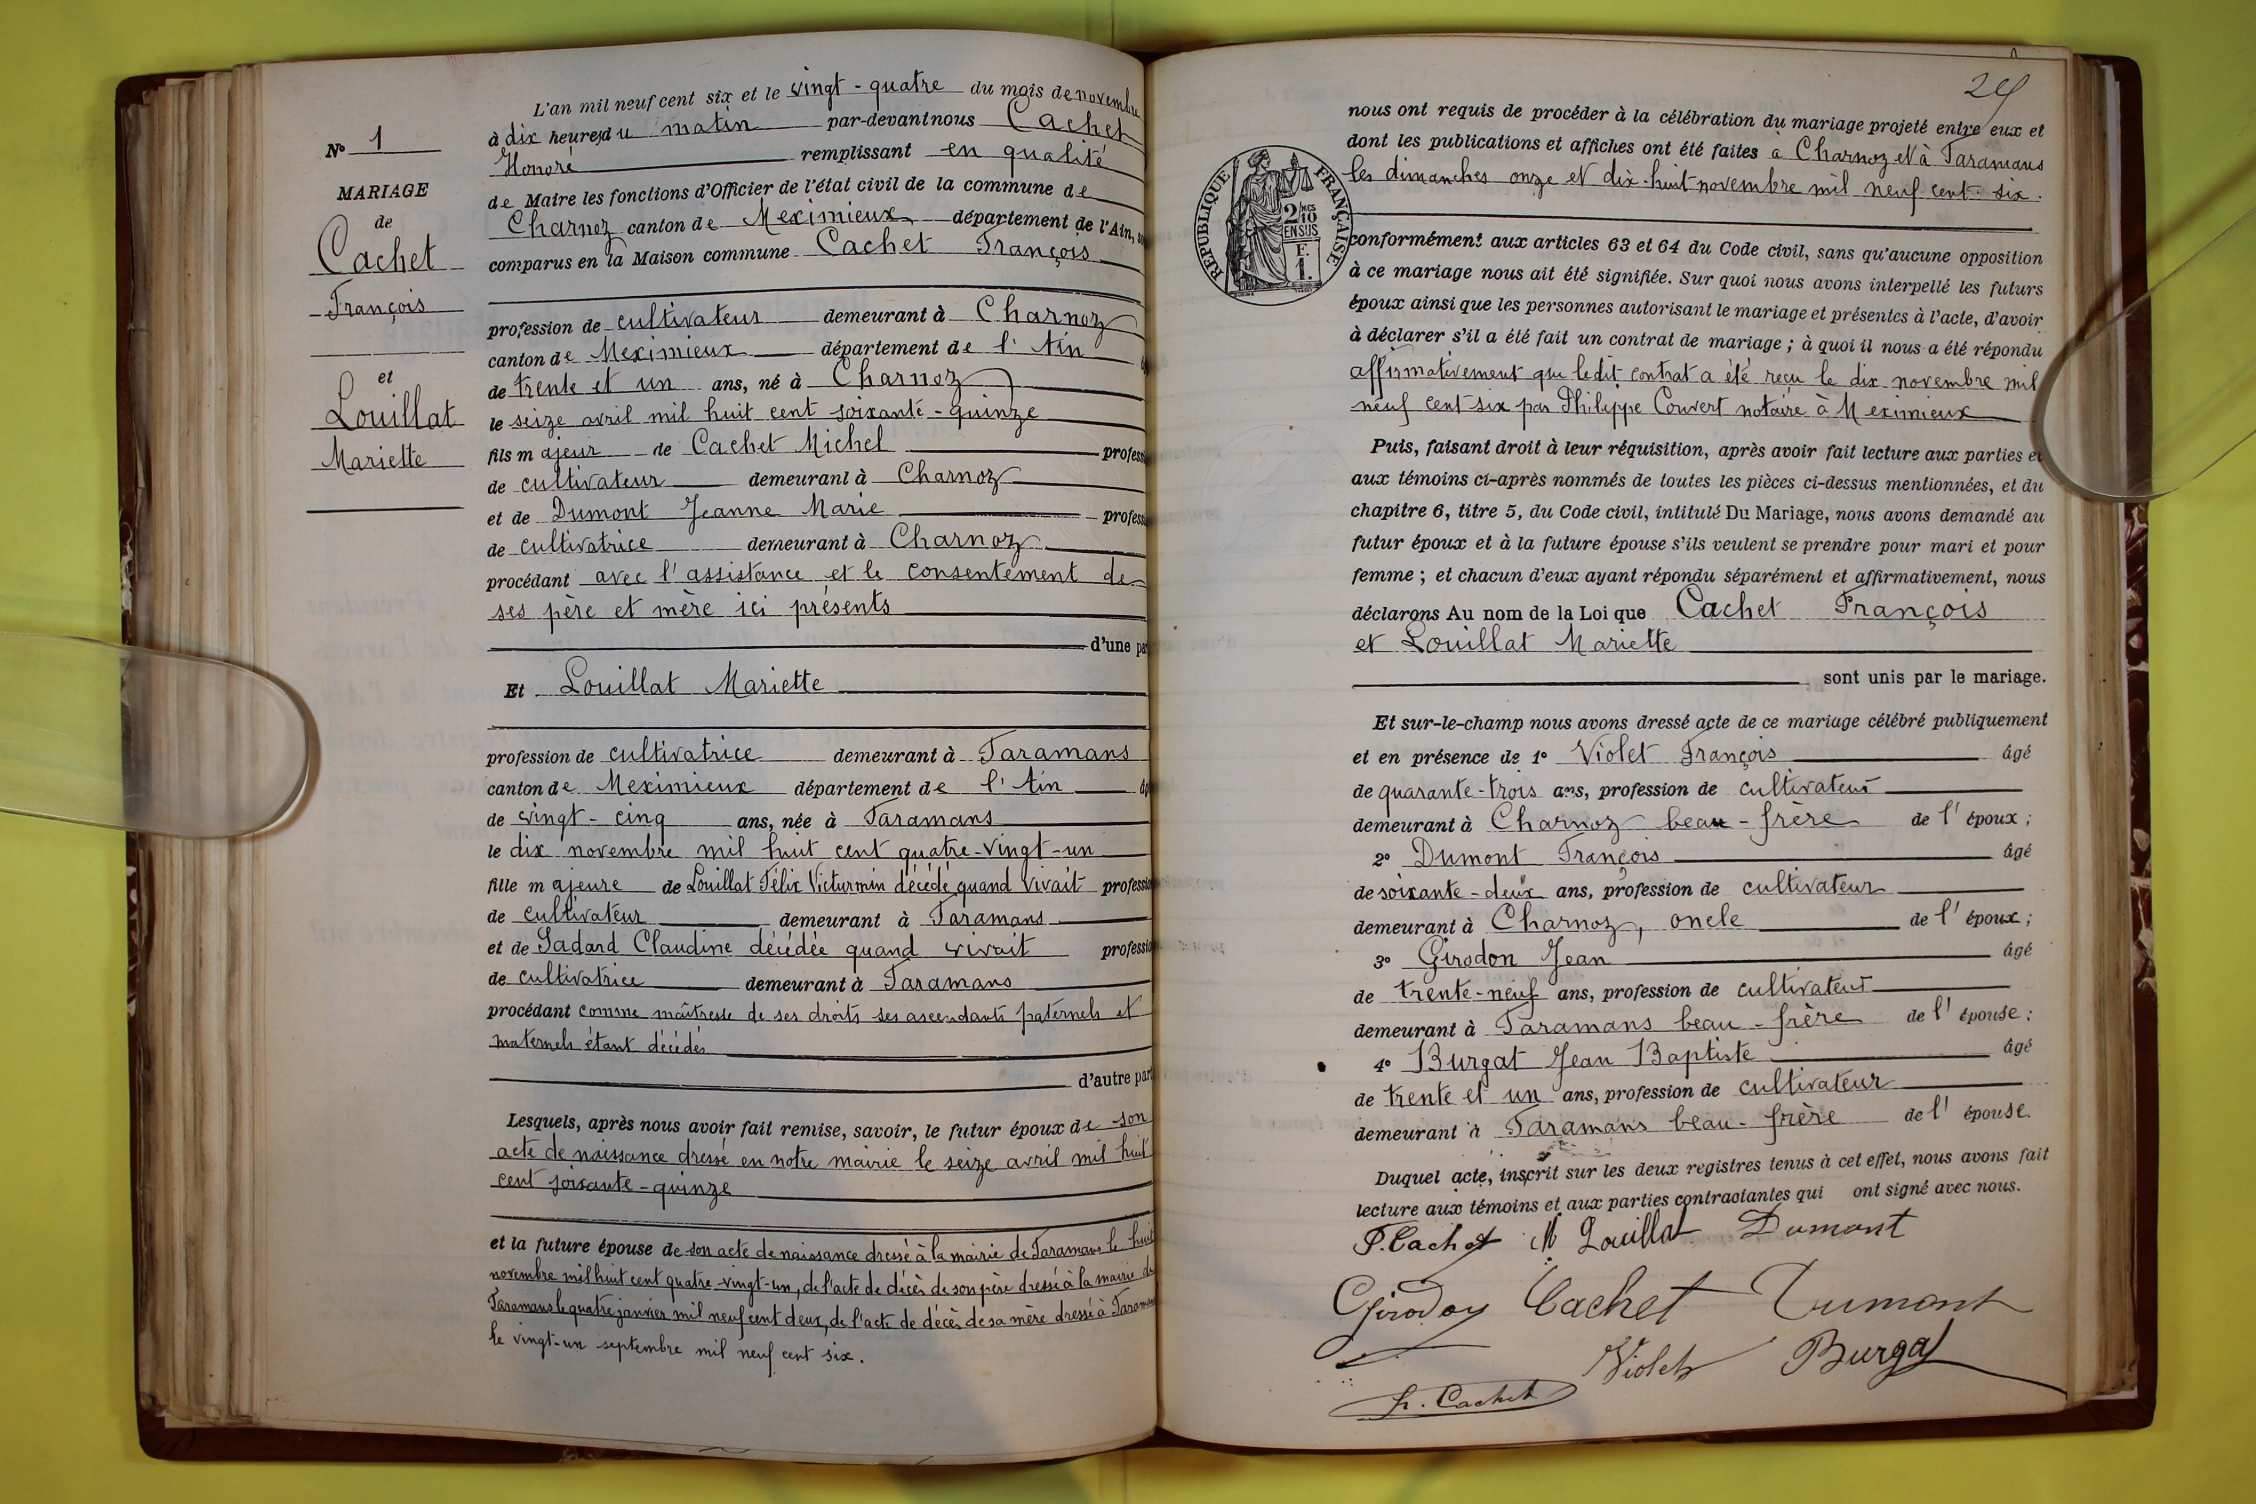 L'an mil neuf cent six et le vingt-quatre du mois de novembre
à dix heures du matin par-devant nous Cachet
Honoré remplissant en qualité
de Maire les fonctions d'Officier de l'état civil de la commune de
Charnoz canton de Meximieux département de l'Ain,
comparus en la Maison commune Cachet François
profession de cultivateur demeurant à Charnoz
canton de Meximieux département de l'Ain
de trente et un ans, né à Charnoz
le seize avril mil huit cent soixante-quinze
fils majeur de Cachet Michel profess
de cultivateur demeurant à Charnoz
et de Dumont Jeanne Marie profess
de cultivatrice demeurant à Charnoz
procédant avec l'assistance et le consentement de
ses père et mère ici présents
d'une pa
Et Louillat Mariette
profession de cultivatrice demeurant à Faramans
canton de Meximieux département de l'Ain
de vingt-cinq ans, née à Faramans
le dix novembre mil huit cent quatre-vingt-un
fille majeure de Louillat Félix Victurmin décédé quand vivait professio
de cultivateur demeurant à Faramans
et de Sadard Claudine décédée quand vivait professio
de cultivatrice demeurant à Faramans
procédant comme maîtresse de ses droits ses ascendants paternels et
maternels étant décédés
d'autre part
Lesquels, après nous avoir fait remise, savoir, le futur époux de son
acte de naissance dressé en notre mairie le seize avril mil huit
cent soixante-quinze
et la future épouse de son acte de naissance dressé à la mairie de Faramans le huit
novembre mil huit cent quatre-vingt-un, de l'acte de décès de son père dressé à la mairie de
Faramans le quatre janvier mil neuf cent deux, de l'acte de décès de sa mère dressé à Faramans
le vingt-un septembre mil neuf cent six.
N° 1
MARIAGE
de
Cachet
François
et
Louillat
Mariette
RÉPUBLIQUE FRANÇAISE
2/10
EN SUS
F.
1.
nous ont requis de procéder à la célébration du mariage projeté entre eux et
dont les publications et affiches ont été faites à Charnoz et à Faramans
les dimanches onze et dix-huit novembre mil neuf cent six.
conformément aux articles 63 et 64 du Code civil, sans qu'aucune opposition
à ce mariage nous ait été signifiée. Sur quoi nous avons interpellé les futurs
époux ainsi que les personnes autorisant le mariage et présentes à l'acte, d'avoir
à déclarer s'il a été fait un contrat de mariage ; à quoi il nous a été répondu
affirmativement que ledit contrat a été reçu le dix novembre mil
neuf cent six par Philippe Couvert notaire à Meximieux
Puis, faisant droit à leur réquisition, après avoir fait lecture aux parties et
aux témoins ci-après nommés de toutes les pièces ci-dessus mentionnées, et du
chapitre 6, titre 5, du Code civil, intitulé Du Mariage, nous avons demandé au
futur époux et à la future épouse s'ils veulent se prendre pour mari et pour
femme ; et chacun d'eux ayant répondu séparément et affirmativement, nous
déclarons Au nom de la Loi que Cachet François
et Louillat Mariette
sont unis par le mariage.
Et sur-le-champ nous avons dressé acte de ce mariage célébré publiquement
et en présence de 1° Violet François âgé
de quarante-trois ans, profession de cultivateur
demeurant à Charnoz beau-frère de l'époux ;
2° Dumont François âgé
de soixante-deux ans, profession de cultivateur
demeurant à Charnoz, oncle de l'époux ;
3° Girodon Jean âgé
de trente-neuf ans, profession de cultivateur
demeurant à Faramans beau-frère de l'épouse ;
4° Burgat Jean Baptiste âgé
de trente et un ans, profession de cultivateur
demeurant à Faramans beau-frère de l'épouse.
Duquel acte, inscrit sur les deux registres tenus à cet effet, nous avons fait
lecture aux témoins et aux parties contractantes qui ont signé avec nous.
F. Cachet M Louillat Dumont
Girodon Cachet Dumont
Violet Burgat
h. Cachet